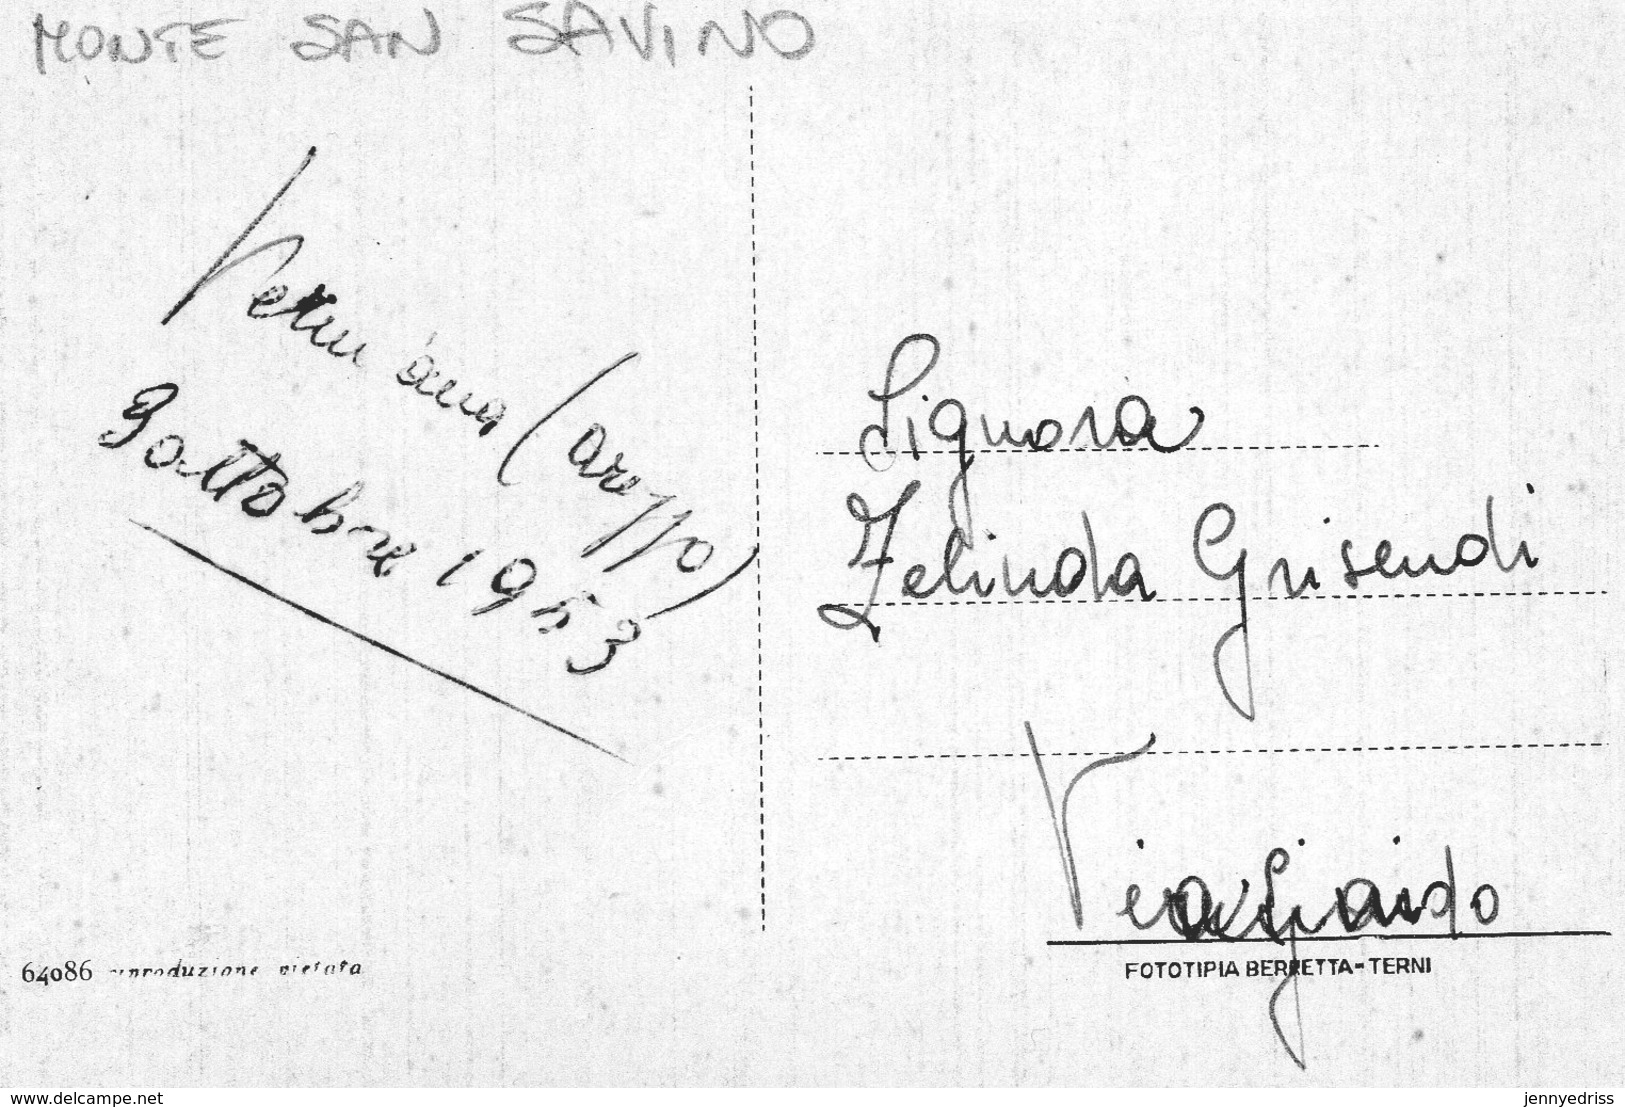 MONTE SAN SAVINO
(arezzo)
9 ottobre 1953
Signora
Zelinda Grisendi
64086 riproduzione vietata
FOTOTIPIA BERRETTA - TERNI
www.delcampe.net
jennyedriss